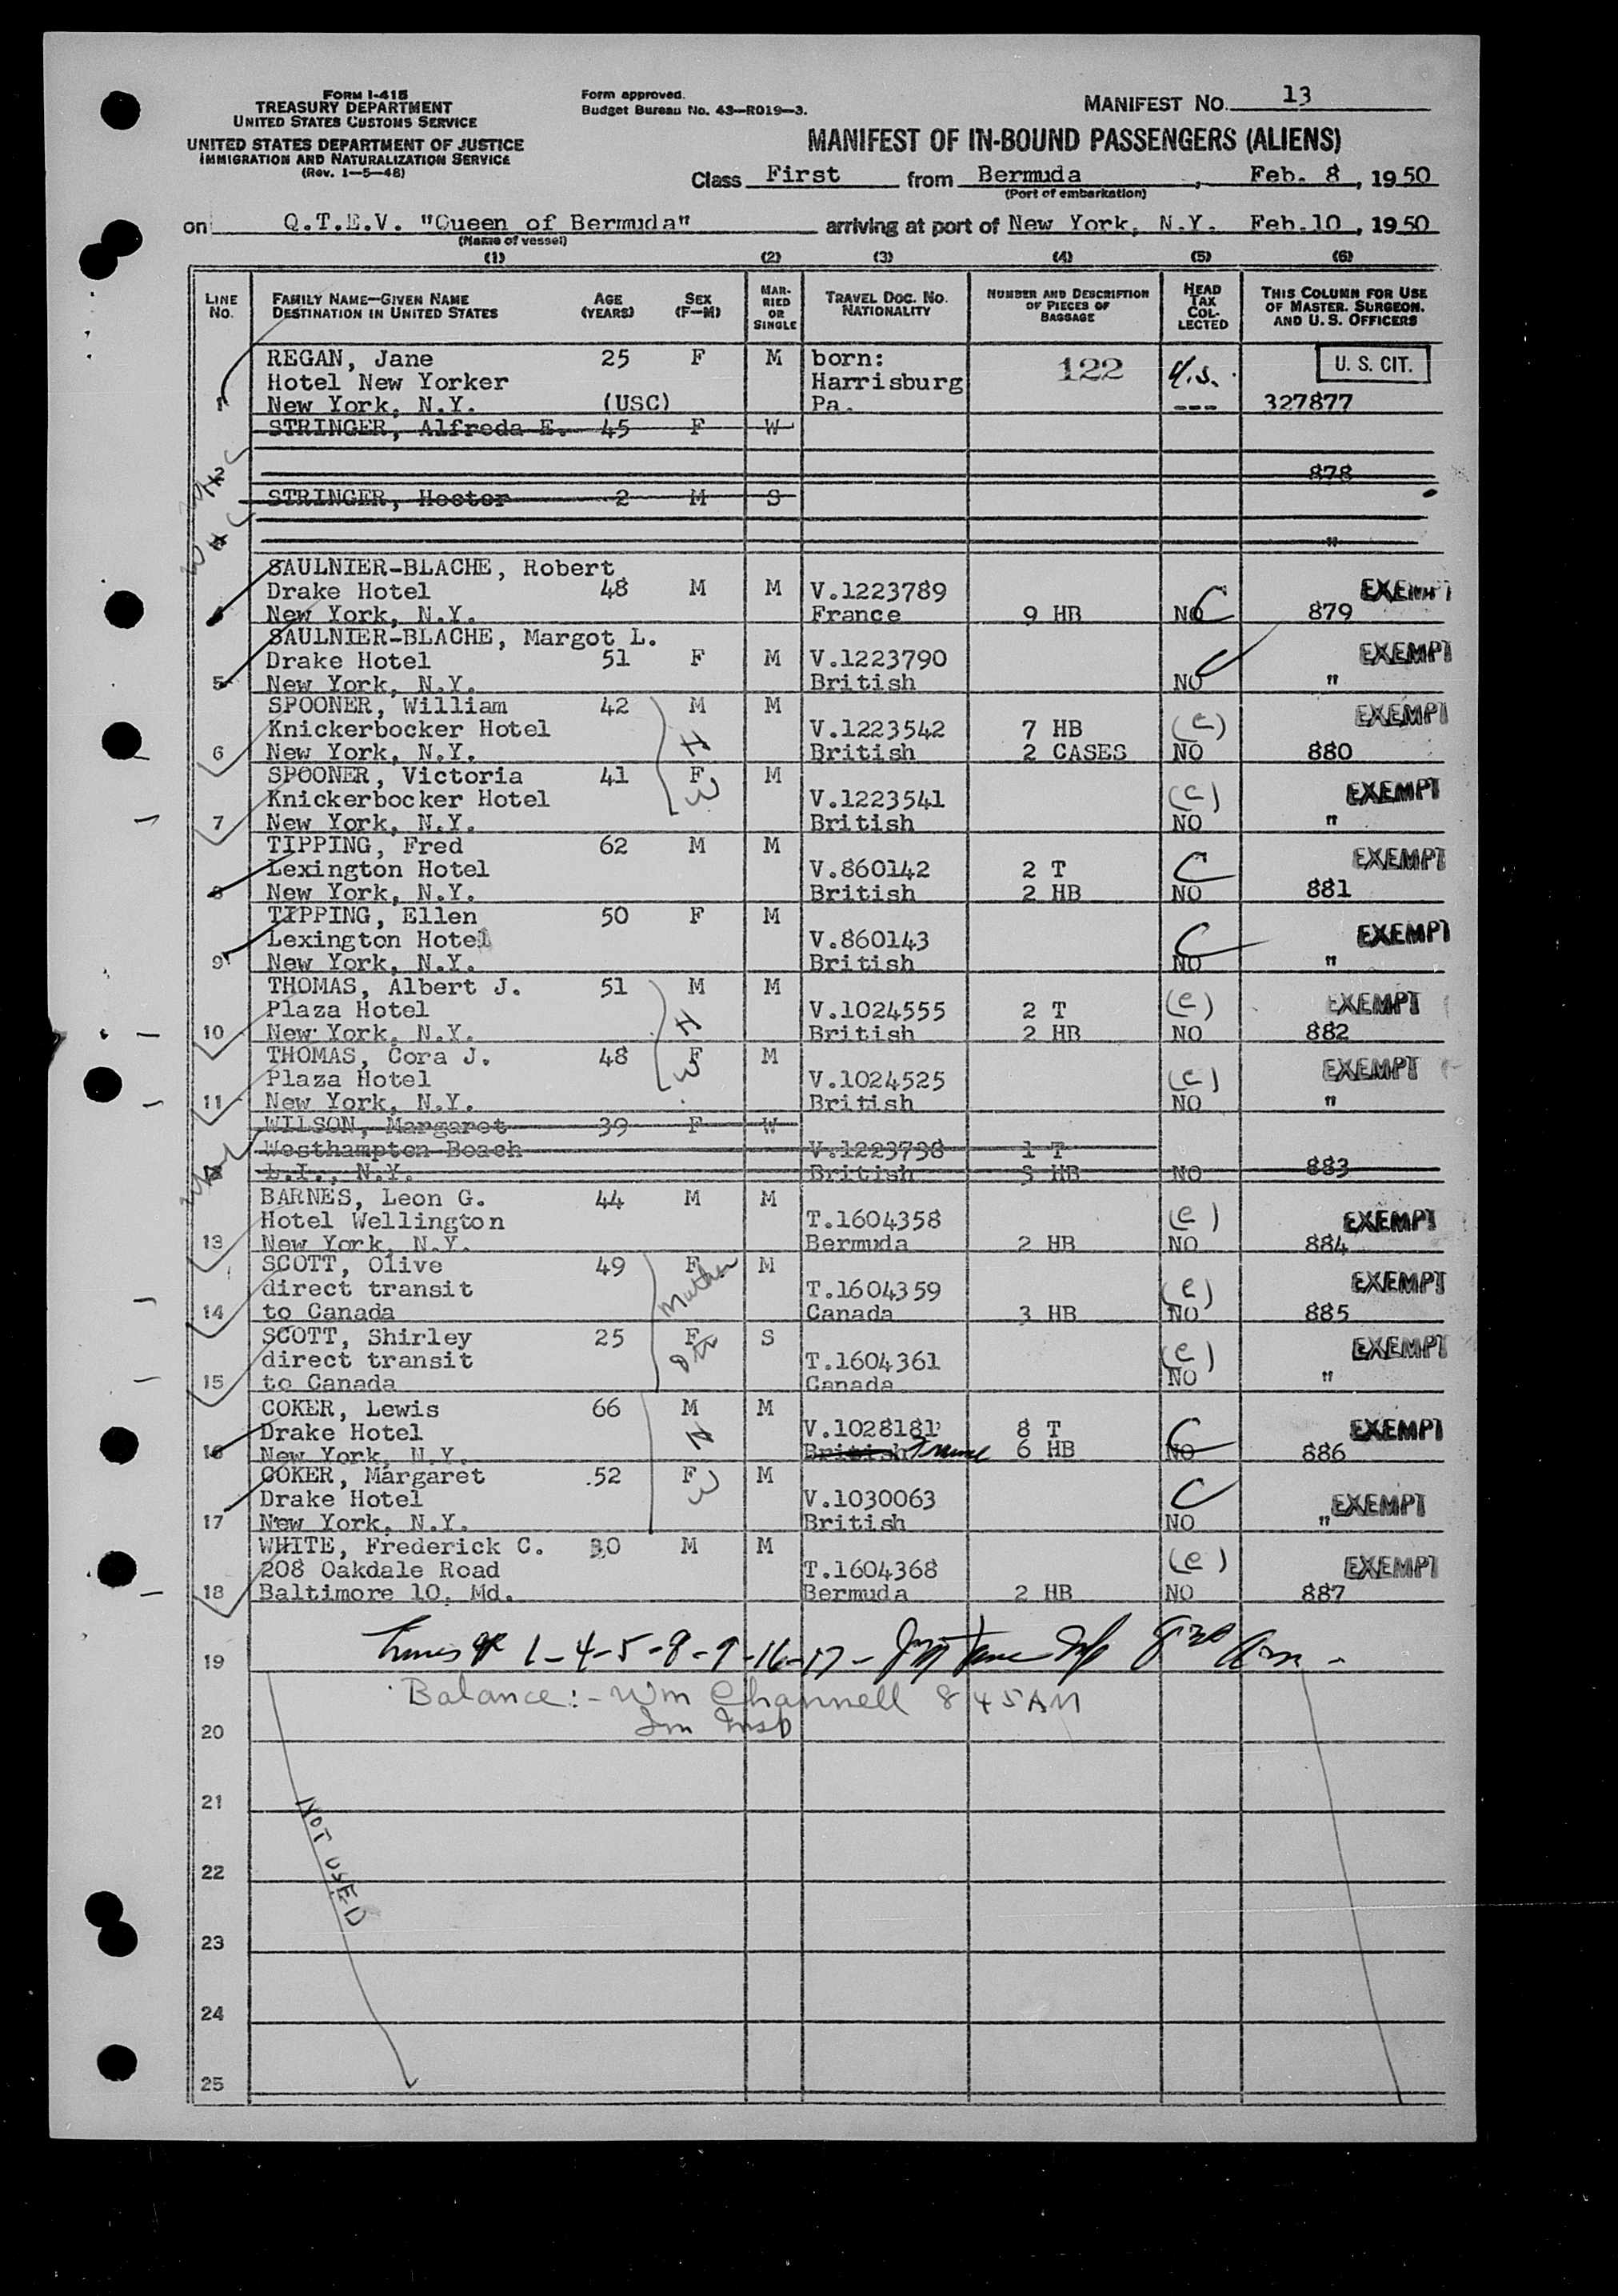 FORM I-415
TREASURY DEPARTMENT
UNITED STATES CUSTOMS SERVICE
UNITED STATES DEPARTMENT OF JUSTICE
IMMIGRATION AND NATURALIZATION SERVICE
(Rev. 1-5-48)
Form approved.
Budget Bureau No. 43-R019-3.
MANIFEST NO. 13
MANIFEST OF IN-BOUND PASSENGERS (ALIENS)
Class First from Bermuda, Feb. 8, 1950
(Port of embarkation)
on Q.T.E.V. "Queen of Bermuda" arriving at port of New York, N.Y. Feb.10, 1950
(Name of vessel)
(1) (2) (3) (4) (5) (6)
LINE NO.
FAMILY NAME—GIVEN NAME
DESTINATION IN UNITED STATES
AGE (YEARS)
SEX (F—M)
MARRIED OR SINGLE
TRAVEL DOC. NO. NATIONALITY
NUMBER AND DESCRIPTION OF PIECES OF BAGGAGE
HEAD TAX COLLECTED
THIS COLUMN FOR USE OF MASTER, SURGEON, AND U. S. OFFICERS
REGAN, Jane 25 F M born: 122 U.S. U. S. CIT.
Hotel New Yorker Harrisburg
1 New York, N.Y. (USC) Pa. --- 327877
STRINGER, Alfreda E. 45 F W
2 878
STRINGER, Hector 2 M S
"
SAULNIER-BLACHE, Robert
Drake Hotel 48 M M V.1223789 EXEMPT
4 New York, N.Y. France 9 HB NO C 879
SAULNIER-BLACHE, Margot L.
Drake Hotel 51 F M V.1223790 C EXEMPT
5 New York, N.Y. British NO "
SPOONER, William 42 M M EXEMPT
Knickerbocker Hotel H V.1223542 7 HB (c)
6 New York, N.Y. British 2 CASES NO 880
SPOONER, Victoria 41 F M
Knickerbocker Hotel W V.1223541 (c) EXEMPT
7 New York, N.Y. British NO "
TIPPING, Fred 62 M M EXEMPT
Lexington Hotel V.860142 2 T C
8 New York, N.Y. British 2 HB NO 881
TIPPING, Ellen 50 F M
Lexington Hotel V.860143 C EXEMPT
9 New York, N.Y. British NO "
THOMAS, Albert J. 51 M M
Plaza Hotel H V.1024555 2 T (c) EXEMPT
10 New York, N.Y. British 2 HB NO 882
THOMAS, Cora J. 48 F M EXEMPT
Plaza Hotel W V.1024525 (c)
11 New York, N.Y. British NO "
WILSON, Margaret 39 F W
Westhampton Beach V.1223738 1 T
L.I., N.Y. British 3 HB NO 883
BARNES, Leon G. 44 M M
Hotel Wellington T.1604358 (c) EXEMPT
13 New York, N.Y. Bermuda 2 HB NO 884
SCOTT, Olive 49 F M
direct transit Mother T.1604359 (c) EXEMPT
14 to Canada Canada 3 HB NO 885
SCOTT, Shirley 25 F S
direct transit T.1604361 (c) EXEMPT
15 to Canada Canada NO "
COKER, Lewis 66 M M
Drake Hotel H V.1028181 8 T C EXEMPT
16 New York, N.Y. British 6 HB NO 886
COKER, Margaret 52 F M
Drake Hotel W V.1030063 C EXEMPT
17 New York, N.Y. British NO "
WHITE, Frederick C. 30 M M
208 Oakdale Road T.1604368 (c) EXEMPT
18 Baltimore 10, Md. Bermuda 2 HB NO 887
19 1-4-5-8-9-16-17-
Balance:- Wm Channell 8 45 AM
20 Im Insp
21
NOT USED
22
23
24
25